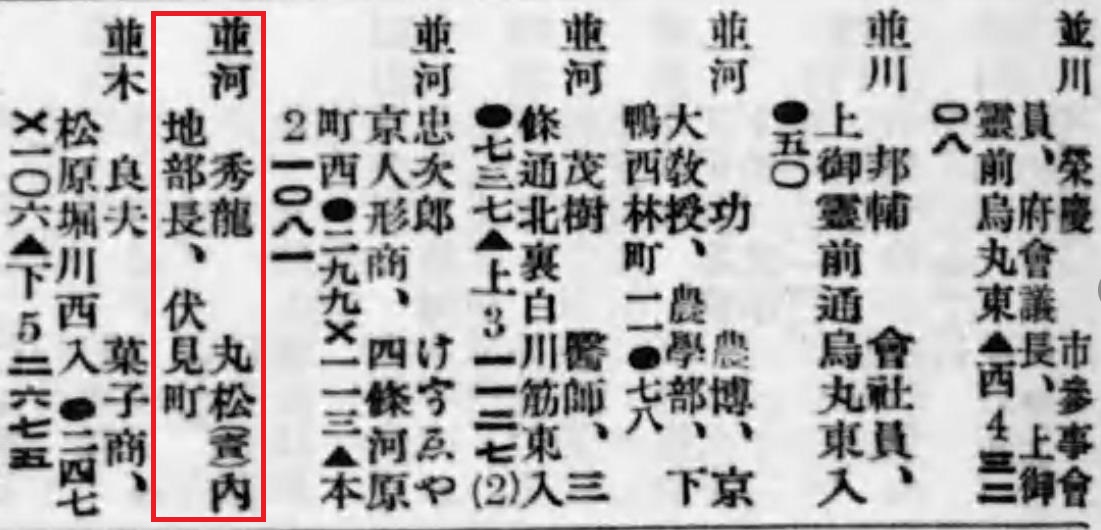 並川 榮慶 市參事會
員、府會議長、上御
靈前烏丸東▲西4三三
〇八
並川 邦輔 會社員、
上御靈前通烏丸東入
●五〇
並河 功 農博、京
大教授、農學部、下
鴨西林町一一●七八
並河 茂樹 醫師、三
條通北裏白川筋東入
●七三七▲上3一一二七(2)
並河 忠次郎 けうゑや
京人形商、四條河原
町西●二九九×一一三▲本
2一〇八一
並河 秀龍 丸松(壹)内
地部長、伏見町
並木 良夫 菓子商、
松原堀川西入●二四七
×一〇六▲下5二六七五